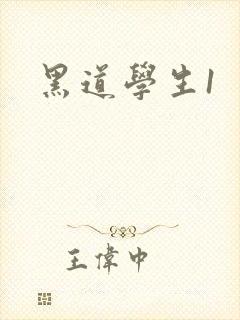 黑道學生1
王偉中